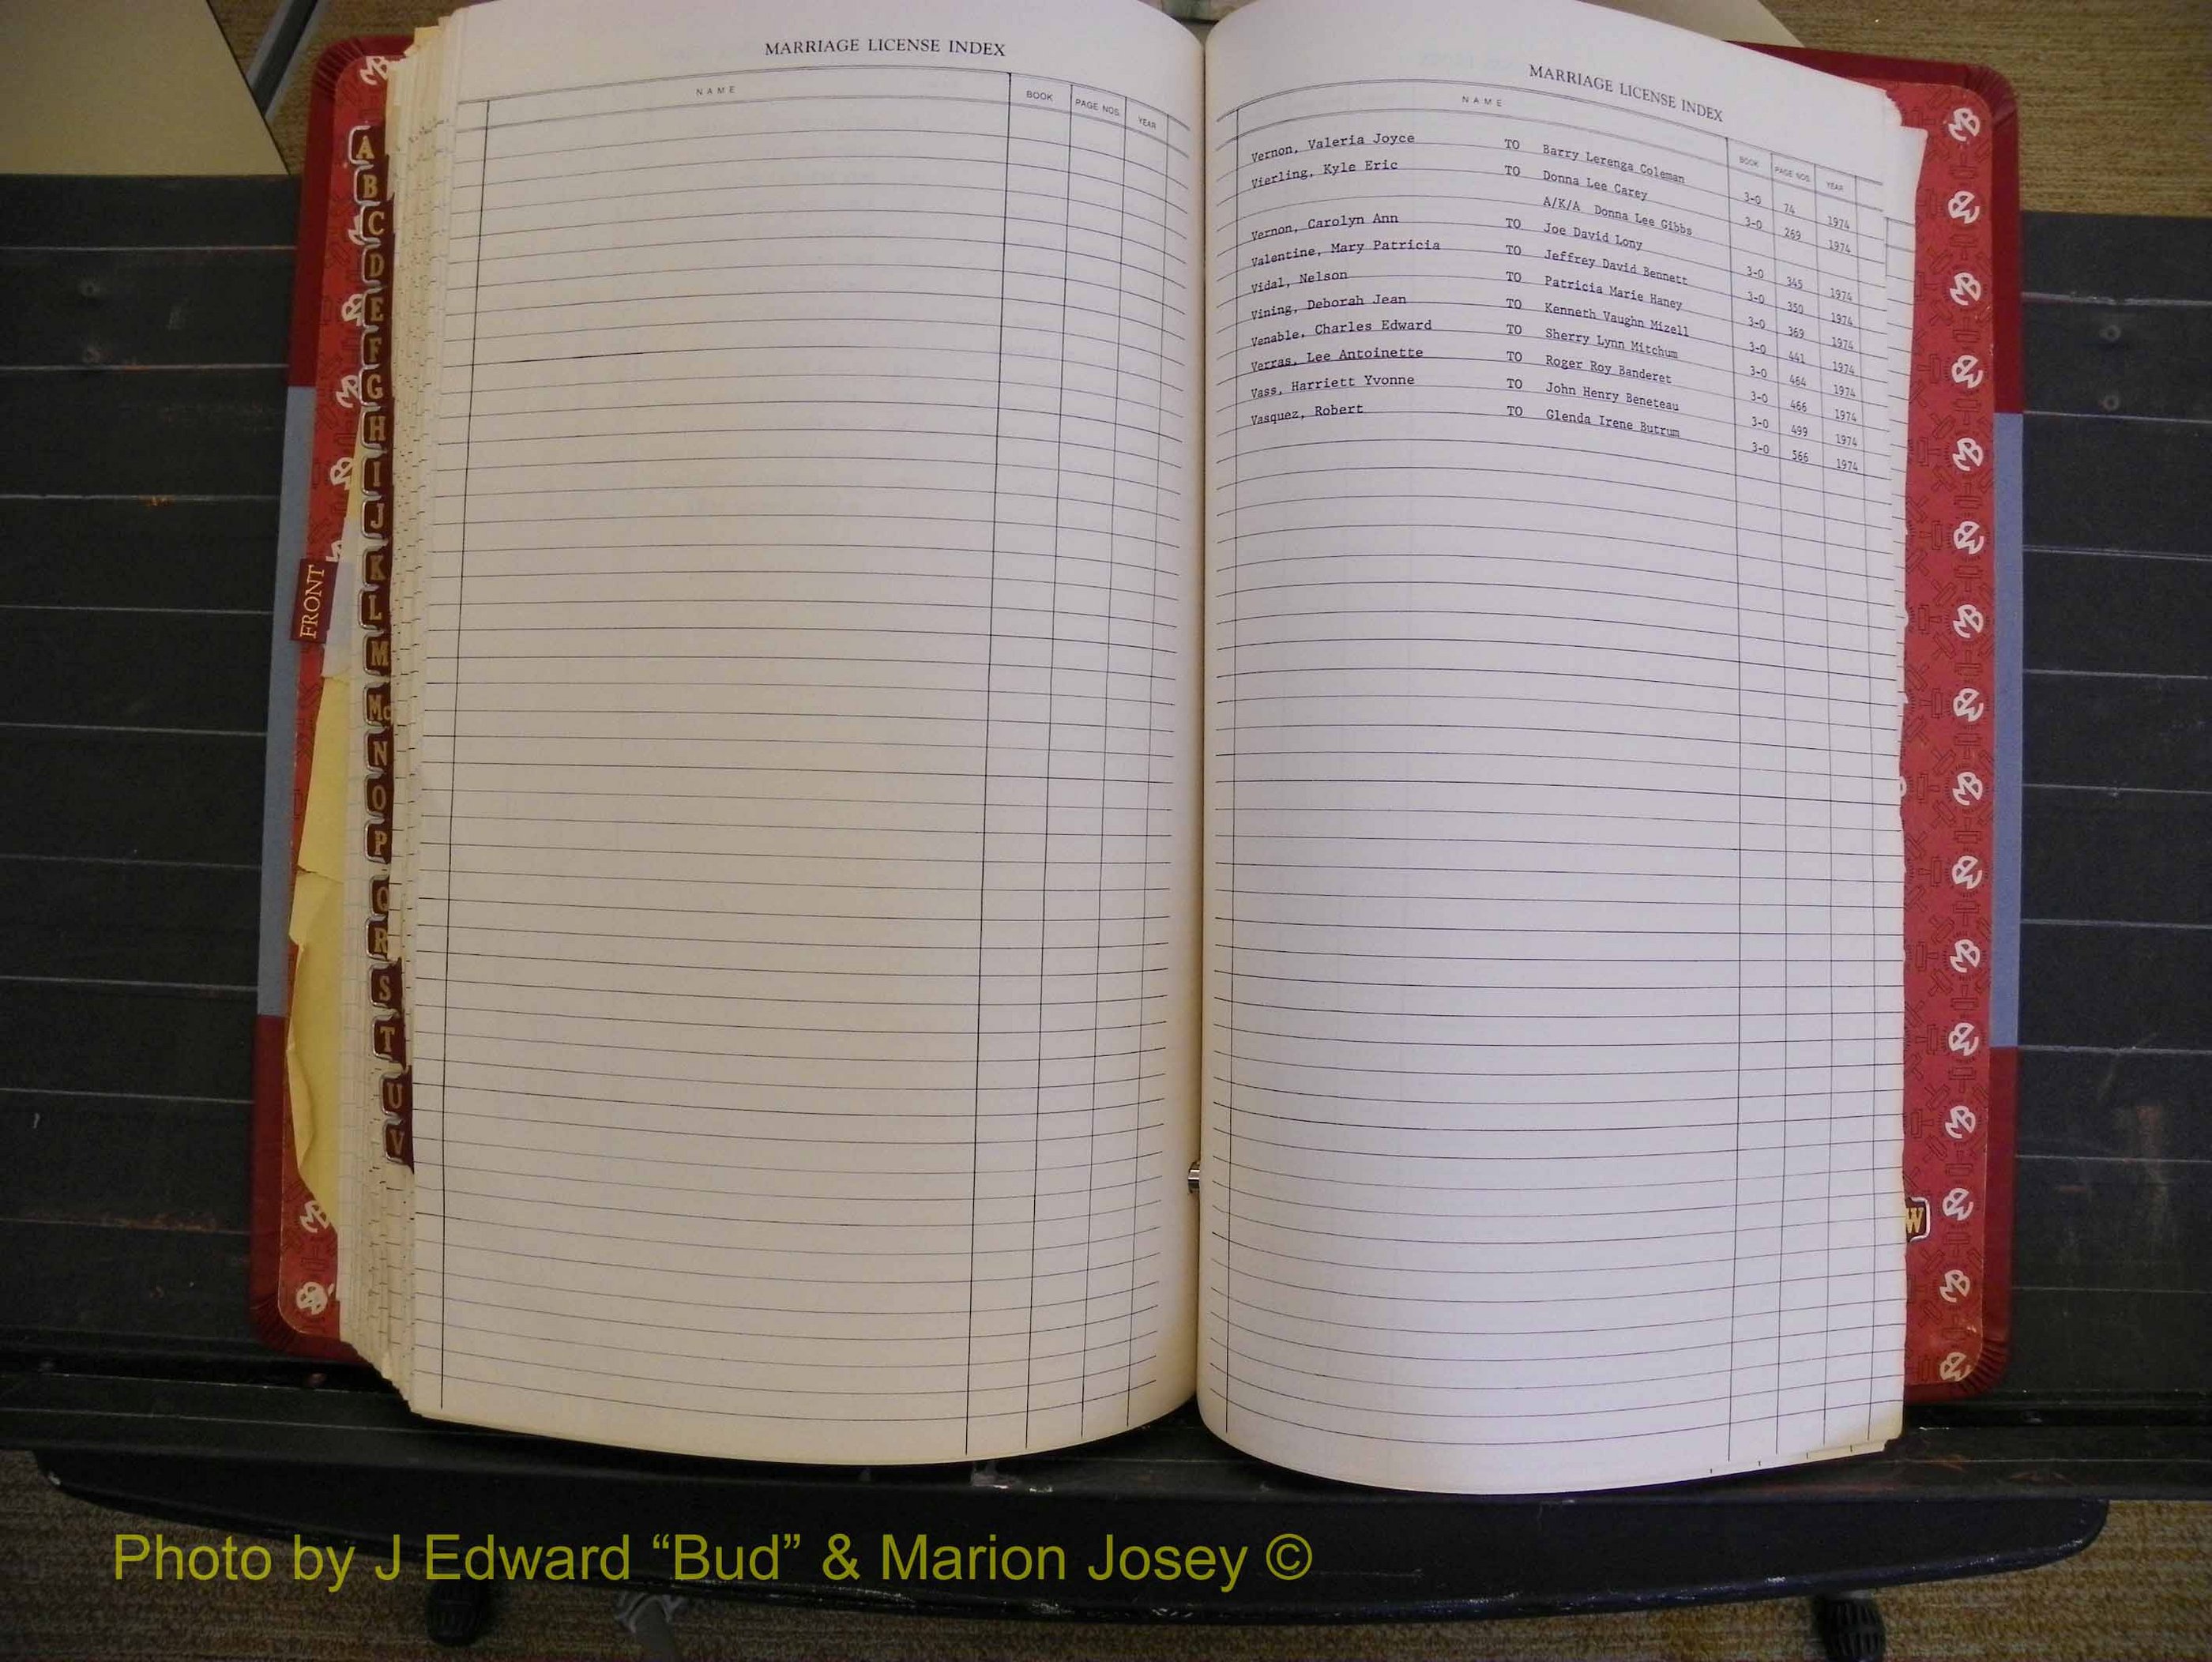 MARRIAGE LICENSE INDEX
NAME BOOK PAGE NOS. YEAR
MARRIAGE LICENSE INDEX
NAME BOOK PAGE NOS. YEAR
Vernon, Valeria Joyce TO Barry Lerenza Coleman 3-0 74 1974
Vierling, Kyle Eric TO Donna Lee Carey 3-0 269 1974
A/K/A Donna Lee Gibbs
Vernon, Carolyn Ann TO Joe David Lony 3-0 345 1974
Valentine, Mary Patricia TO Jeffrey David Bennett 3-0 350 1974
Vidal, Nelson TO Patricia Marie Haney 3-0 369 1974
Vining, Deborah Jean TO Kenneth Vaughn Mizell 3-0 441 1974
Venable, Charles Edward TO Sherry Lynn Mitchum 3-0 464 1974
Verras, Lee Antoinette TO Roger Roy Banderet 3-0 466 1974
Vass, Harriett Yvonne TO John Henry Beneteau 3-0 499 1974
Vasquez, Robert TO Glenda Irene Butrum 3-0 566 1974
A
B
C
D
E
F
G
H
I
J
K
L
M
Mc
N
O
P
Q
R
S
T
U
V
W
FRONT
Photo by J Edward “Bud” & Marion Josey ©